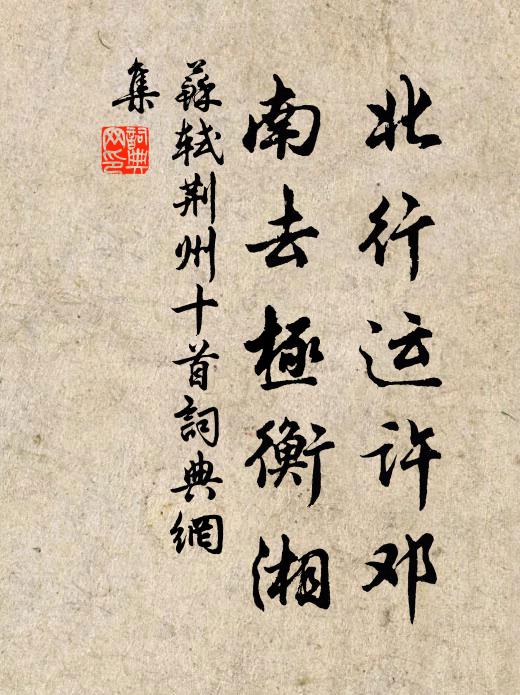 北行运许邓
南去極衡湘
蘇軾荆州十首詞典網
集
詞典
网印